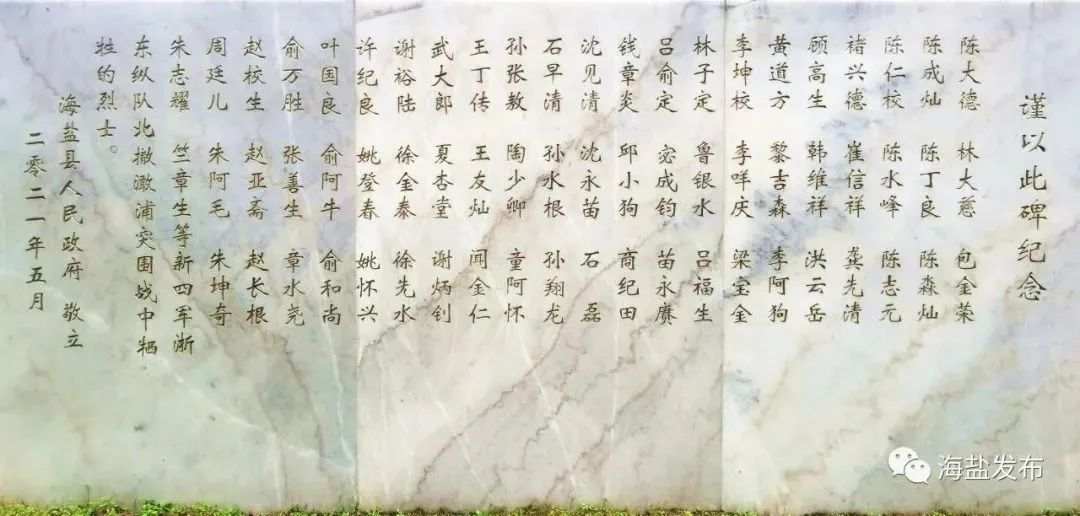 谨以此碑纪念
陈大德 林大慈 包金荣
陈成灿 陈丁良 陈森灿
陈仁校 陈水峰 陈志元
褚兴德 崔信祥 龚先清
顾高生 韩维祥 洪云岳
黄道方 黎吉森 李阿狗
李坤校 李咩庆 梁宝金
林子定 鲁银水 吕福生
吕俞定 宓成钧 苗永赓
钱章炎 邱小狗 商纪田
沈见清 沈永苗 石磊
石早清 孙水根 孙翔龙
孙张教 陶少卿 童阿怀
王丁传 王友灿 闻金仁
武大郎 夏杏堂 谢炳钊
谢裕陆 徐金泰 徐先水
许纪良 姚登春 姚怀兴
叶国良 俞阿牛 俞和尚
俞万胜 张善生 章水尧
赵校生 赵亚斋 赵长根
周廷儿 朱阿毛 朱坤奇
朱志耀 竺章生等新四军浙
东纵队北撤澉浦突围战中牺
牲的烈士。
海盐县人民政府 敬立
二零二一年五月
海盐发布